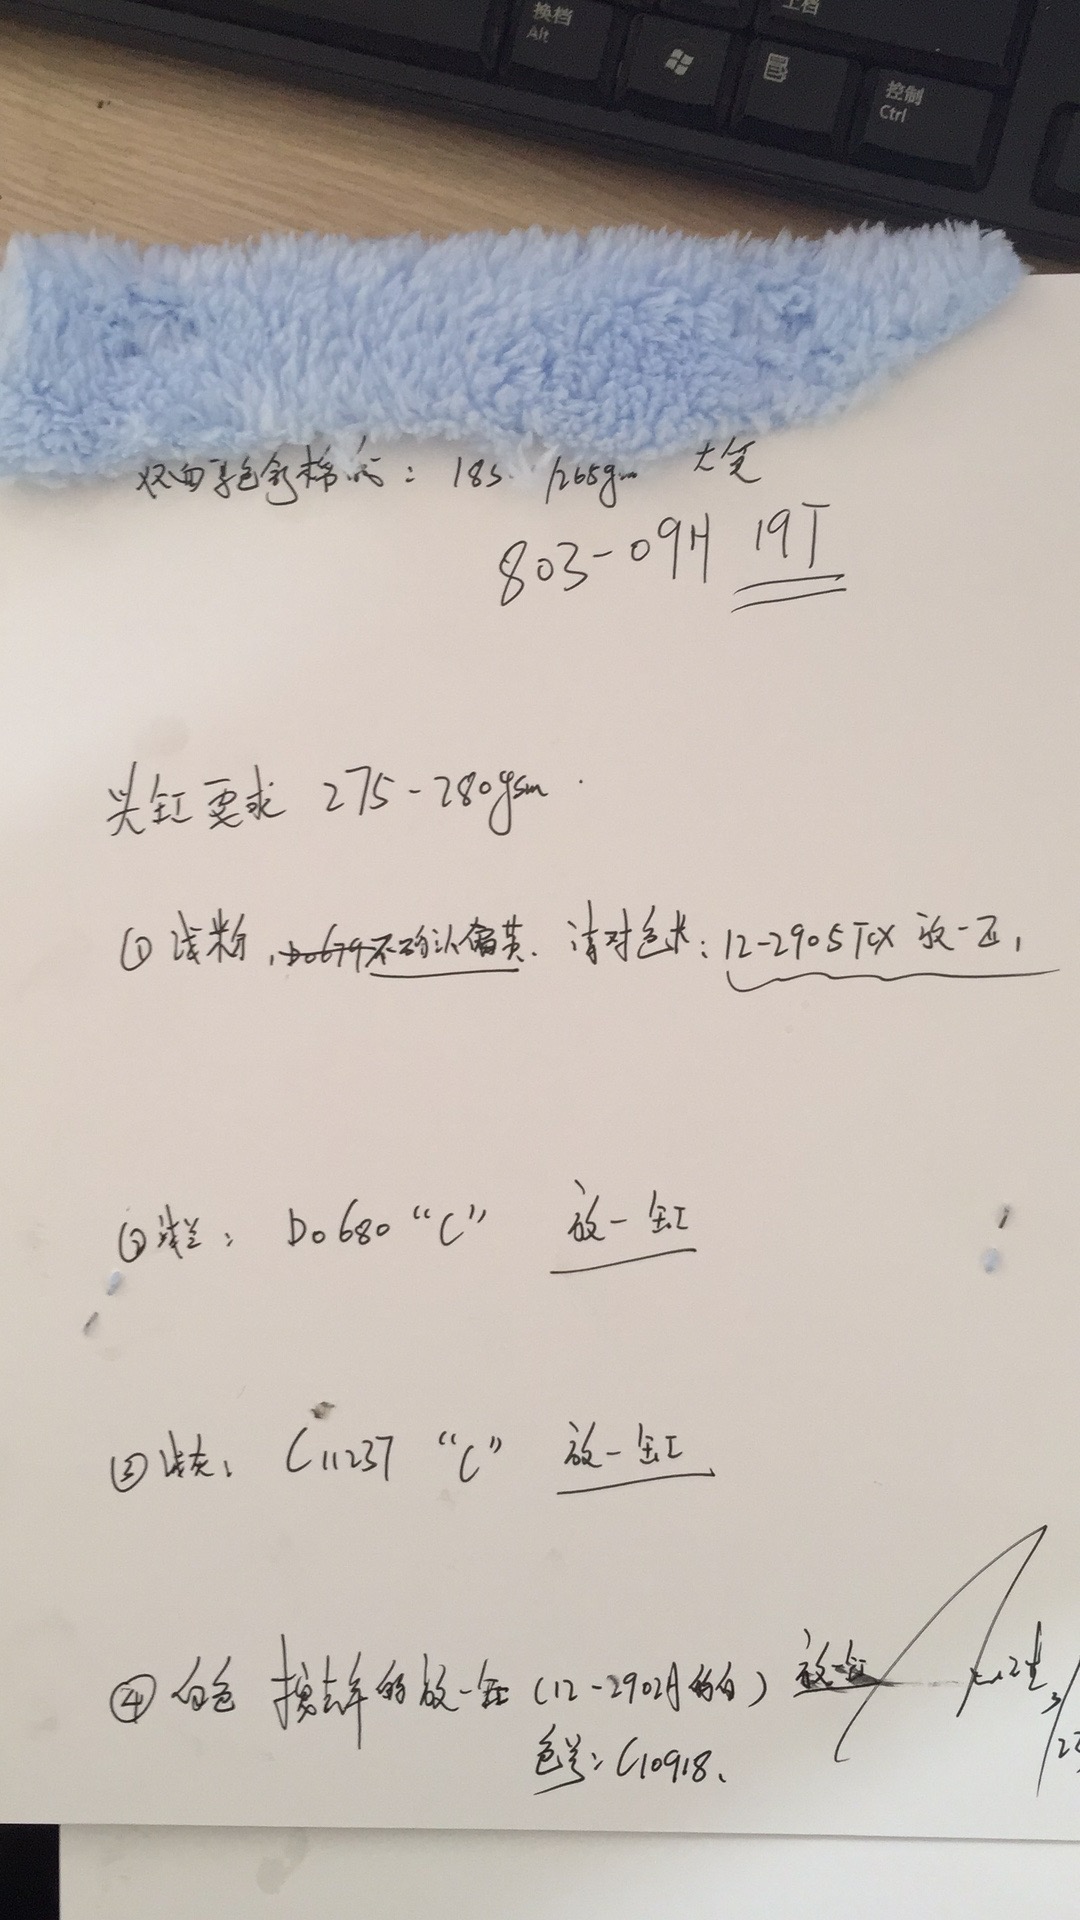 换档
Alt
上档
控制
Ctrl
双面 色舒棉 : 185 /265gm
803-09H 19T
头缸要求 275-280gsm.
① 浅粉, D0679不确认偏黄. 请对色卡: 12-2905TCX 放一缸,
②浅兰: D0680 "C" 放一缸
③浅灰: C11237 "C" 放一缸
④ 白色 按去年的放一缸 (12-2902 的白) 放一缸
色号: C10918.